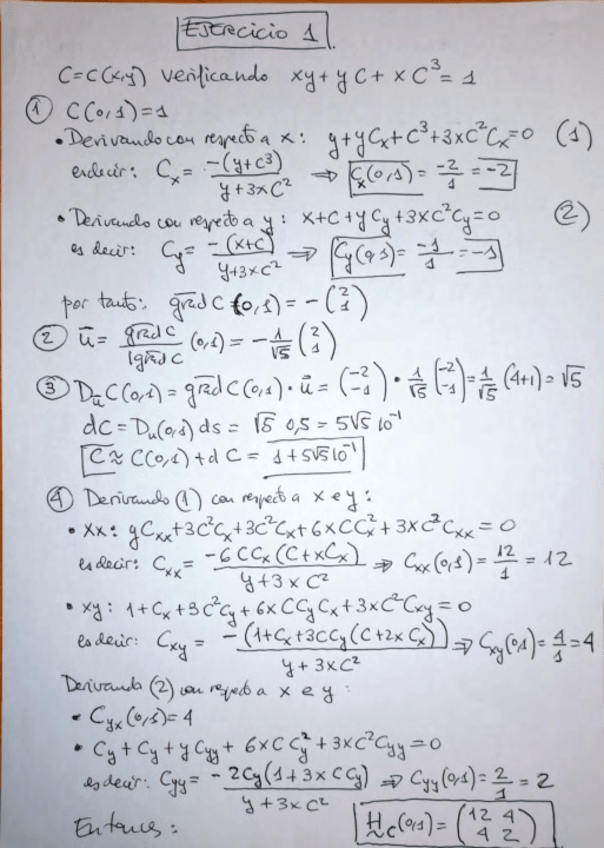 EJERCICIO 1
C=C(x,y) verificando xy+yC+xC³=1
① C(0,1)=1
• Derivando con respecto a x: y+yCx+C³+3xC²Cx=0 (1)
es decir: Cx = -(y+C³)/(y+3xC²) ⇒ Cx(0,1) = -2/1 = -2
• Derivando con respecto a y: x+C+yCy+3xC²Cy=0 (2)
es decir: Cy = -(x+C)/(y+3xC²) ⇒ Cy(0,1) = -1/1 = -1
por tanto: grad C (0,1) = -(2 1)
② ū = grad C/|grad C| (0,1) = -1/√5 (2 1)
③ DūC(0,1) = grad C(0,1) · ū = (-2 -1) · 1/√5 (-2 -1) = 1/√5 (4+1) = √5
dC = Du(0,1) ds = √5 0,5 = 5√5 10⁻¹
C ≈ C(0,1) + dC = 1+5√5 10⁻¹
④ Derivando (1) con respecto a x e y:
• xx: yCxx+3C²Cx+3C²Cx+6xCCx²+3xC²Cxx=0
es decir: Cxx = -6CCx(C+xCx)/(y+3xC²) ⇒ Cxx(0,1) = 12/1 = 12
• xy: 1+Cx+3C²Cy+6xCCyCx+3xC²Cxy=0
es decir: Cxy = -(1+Cx+3CCy(C+2xCx))/(y+3xC²) ⇒ Cxy(0,1) = 4/1 = 4
Derivando (2) con respecto a x e y:
• Cyx(0,1)=4
• Cy+Cy+yCyy+6xCCy²+3xC²Cyy=0
es decir: Cyy = -2Cy(1+3xCCy)/(y+3xC²) ⇒ Cyy(0,1) = 2/1 = 2
Entonces: Hc(0,1) = (12 4 4 2)